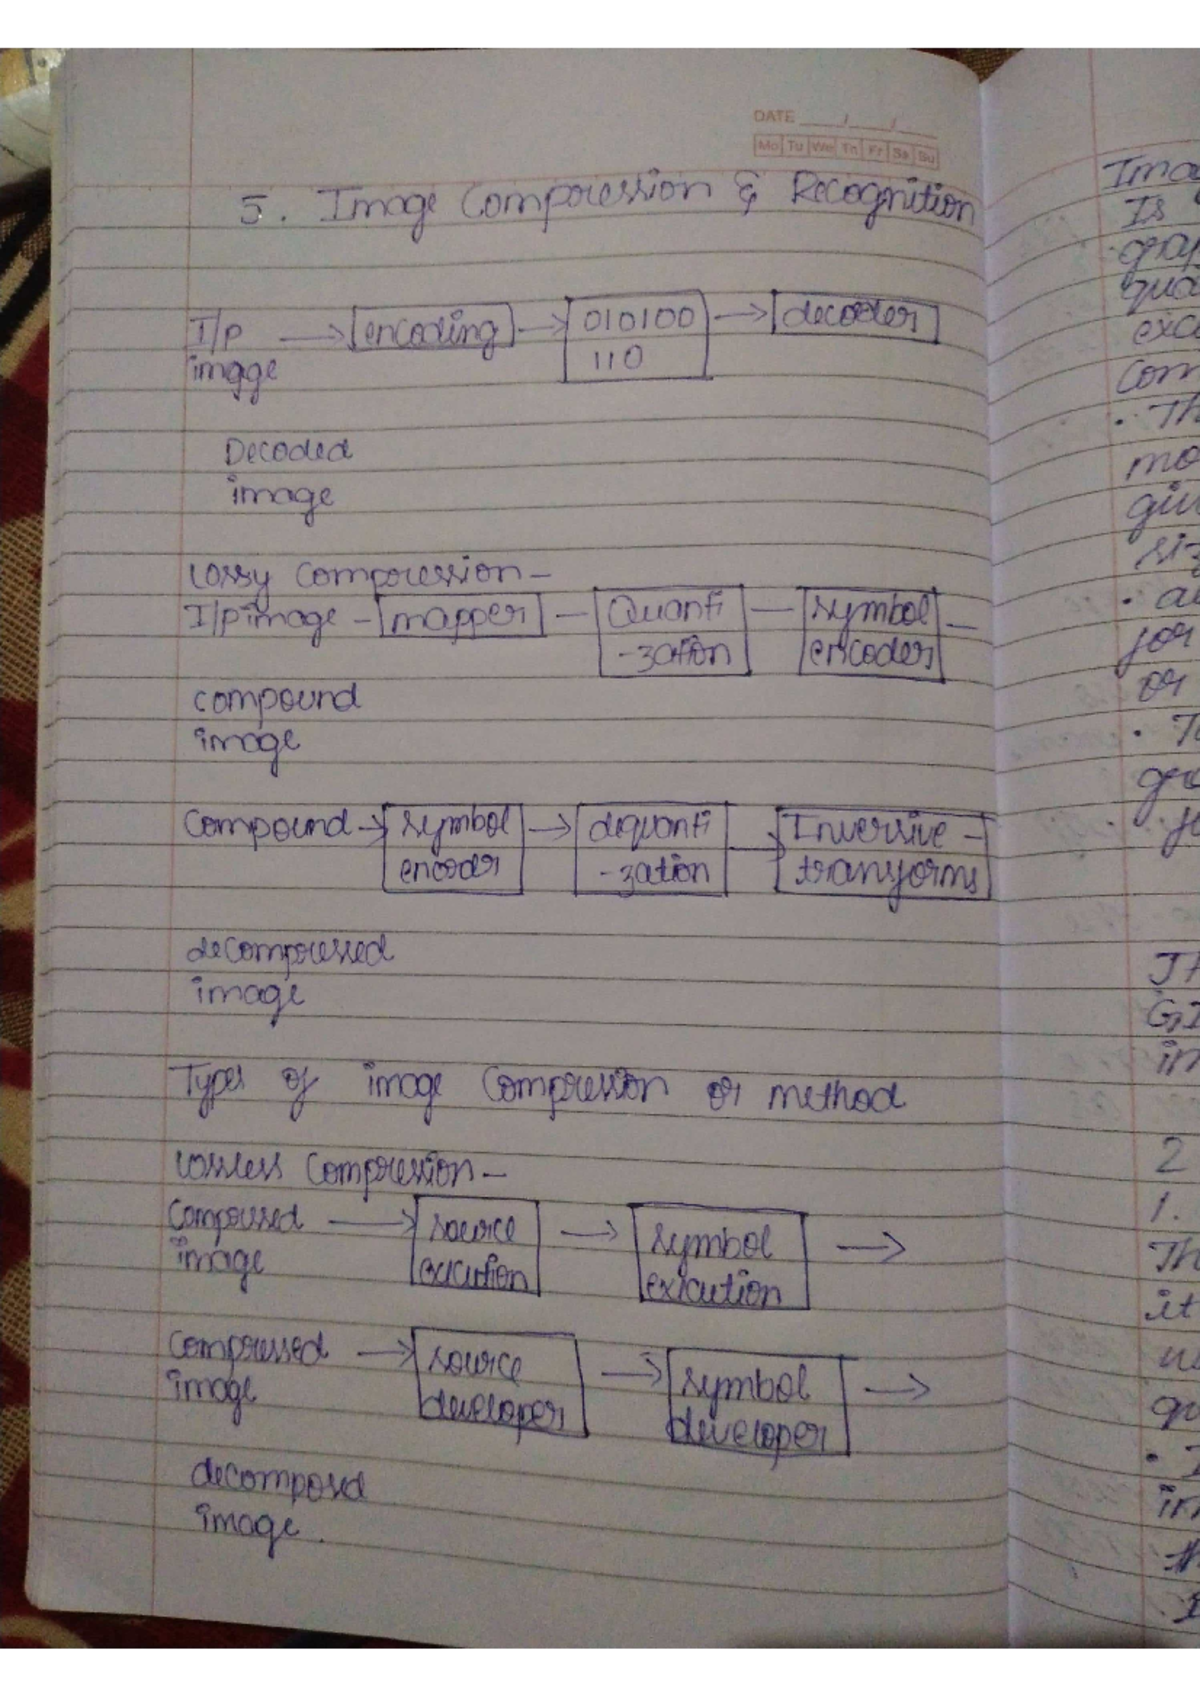 DATE ___/___/___
Mo Tu We Th Fr Sa Su
5. Image Compression & Recognition
I/p → encoding → 010100 → decoder
image 110
Decoded
image
Lossy Compression-
I/p image - mapper - Quanti - symbol -
-zation encoder
compound
image
Compound → symbol → diquanti → Inversive -
encoder -zation transforms
decompressed
image
Types of image Compression or method
Lossless Compression-
Compoused → source → symbol →
image excution exicution
Compressed → source → symbol →
image developer developer
decomposed
image.
Is
com
. Th
mo
giv
siz
for
or
. To
in
2
1.
Th
it